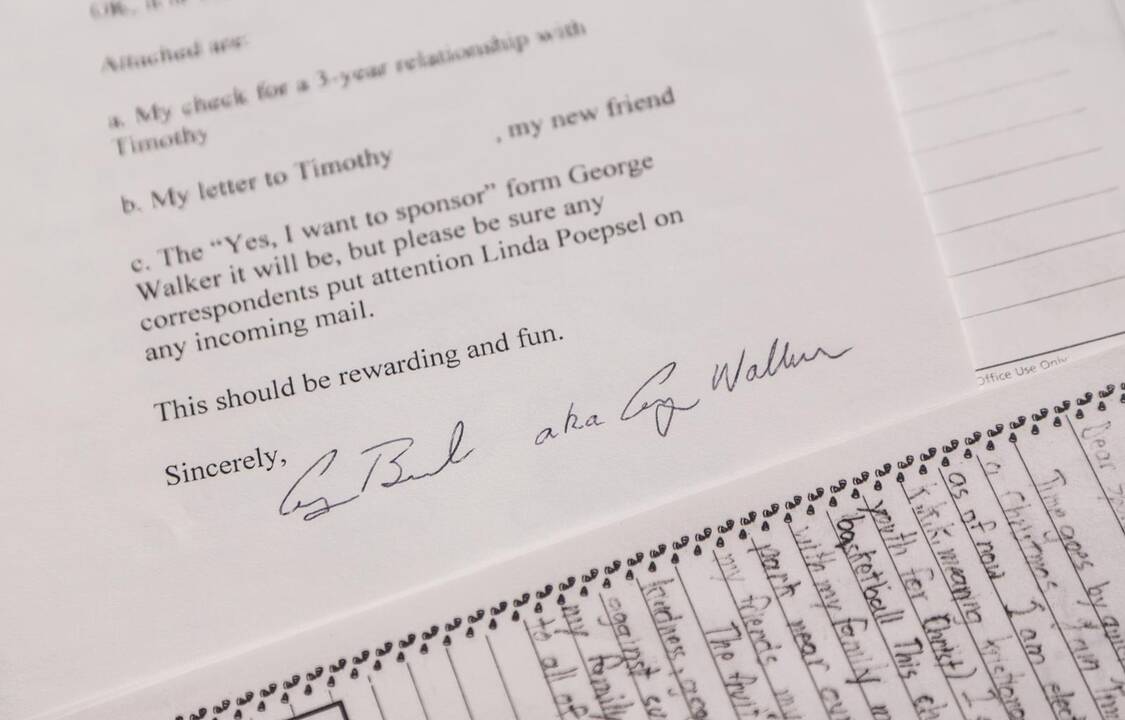 Attached are:
a. My check for a 3-year relationship with
Timothy
b. My letter to Timothy , my new friend
c. The “Yes, I want to sponsor” form George
Walker it will be, but please be sure any
correspondents put attention Linda Poepsel on
any incoming mail.
This should be rewarding and fun.
Sincerely,
aka Walker
Office Use Only
Dear
Time goes by
a christmas
as of now I am
Kikiki meaning
youth for Christ) I
basketball This
with my family
park near
my friends my
The
kindness,
against
my family
to all of